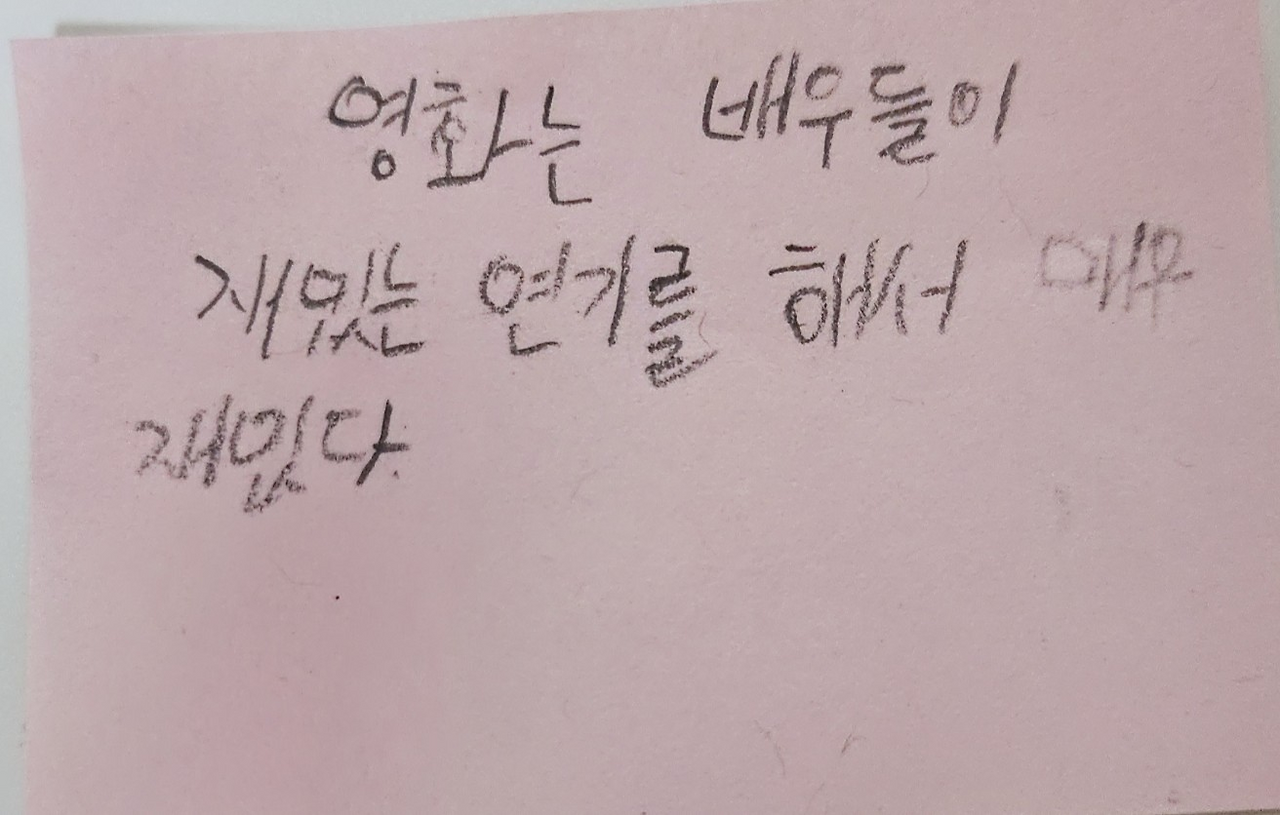 영화는 배우들이
재밌는 연기를 해서 매우
재밌다.